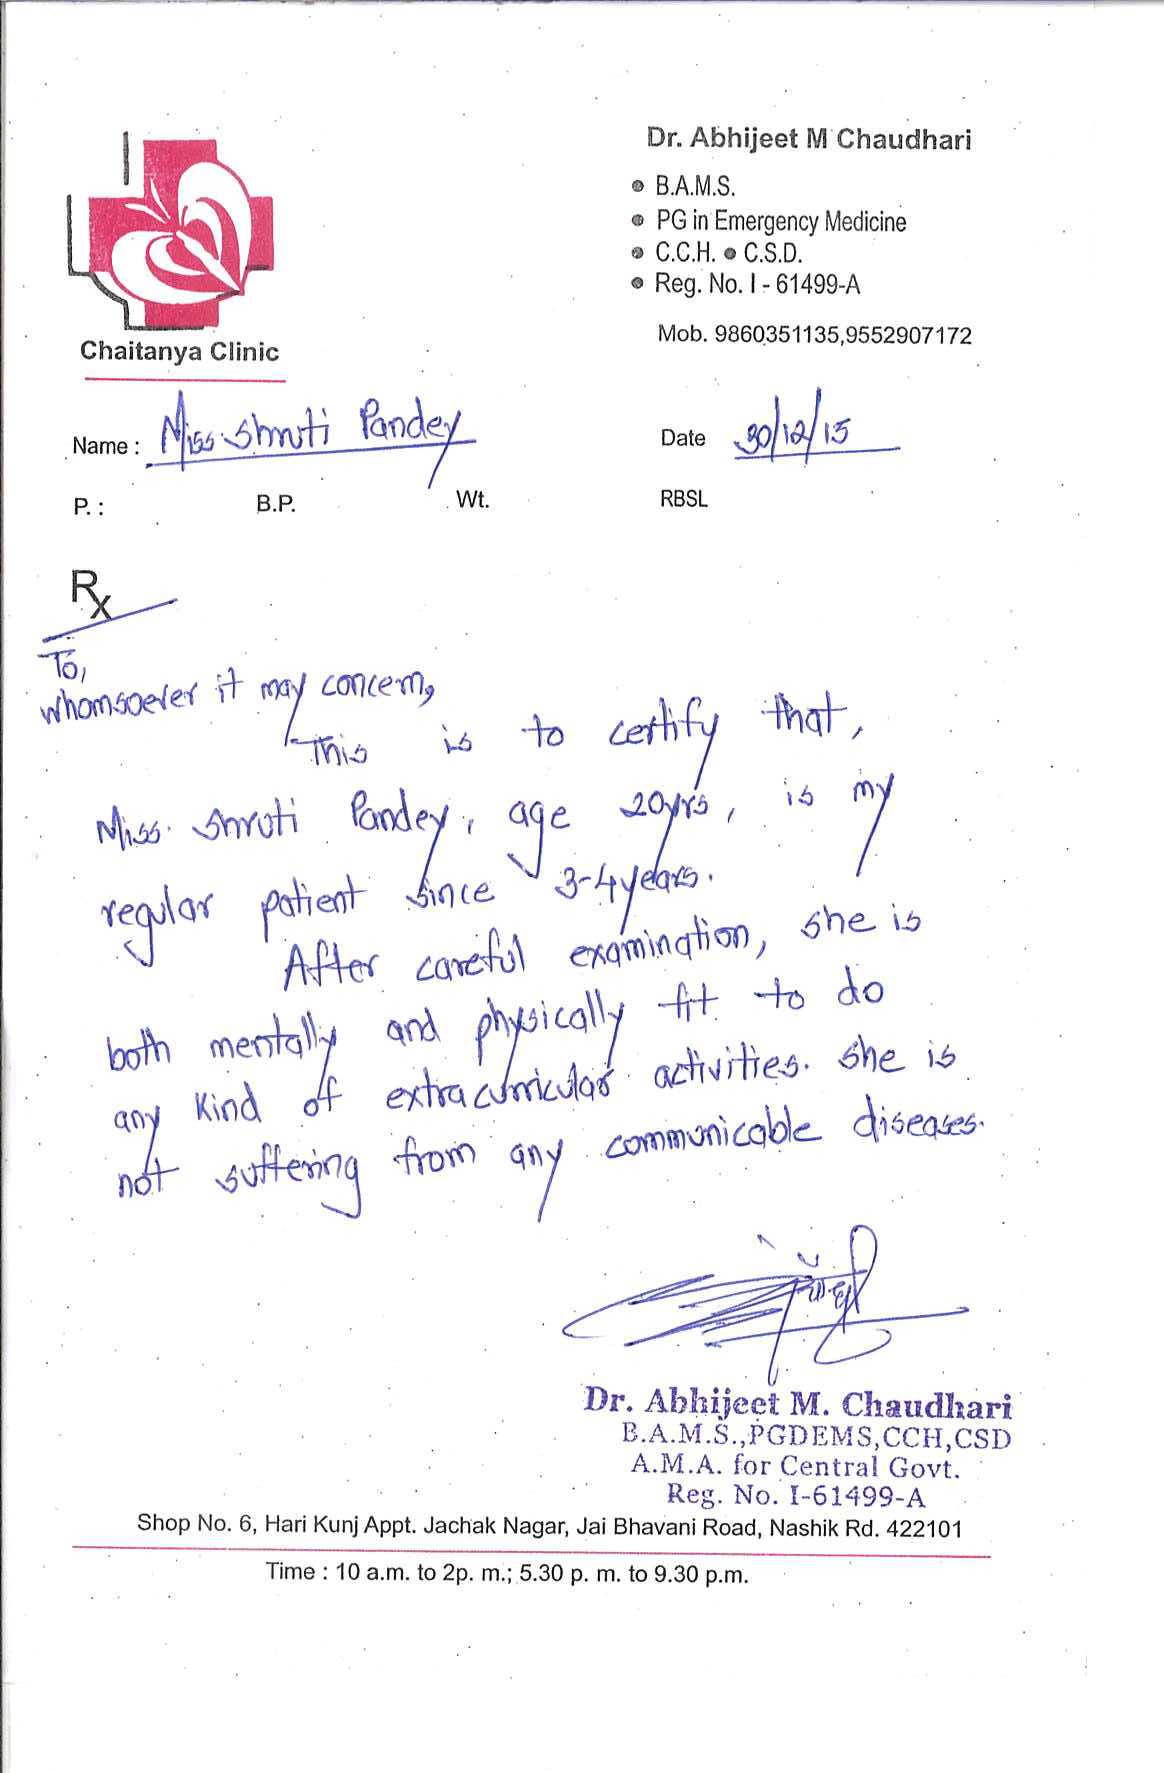 Dr. Abhijeet M Chaudhari
B.A.M.S.
PG in Emergency Medicine
C.C.H. • C.S.D.
Reg. No. I - 61499-A
Mob. 9860351135,9552907172
Chaitanya Clinic
Name : Miss. Shruti Pandey Date 30/12/15
P. : B.P. Wt. RBSL
Rx
To,
whomsoever it may concern,
This is to certify that,
Miss. Shruti Pandey, age 20yrs, is my
regular patient since 3-4 years.
After careful examination, she is
both mentally and physically fit to do
any kind of extracurricular activities. she is
not suffering from any communicable diseases.
Dr. Abhijeet M. Chaudhari
B.A.M.S.,PGDEMS,CCH,CSD
A.M.A. for Central Govt.
Reg. No. I-61499-A
Shop No. 6, Hari Kunj Appt. Jachak Nagar, Jai Bhavani Road, Nashik Rd. 422101
Time : 10 a.m. to 2p. m.; 5.30 p. m. to 9.30 p.m.